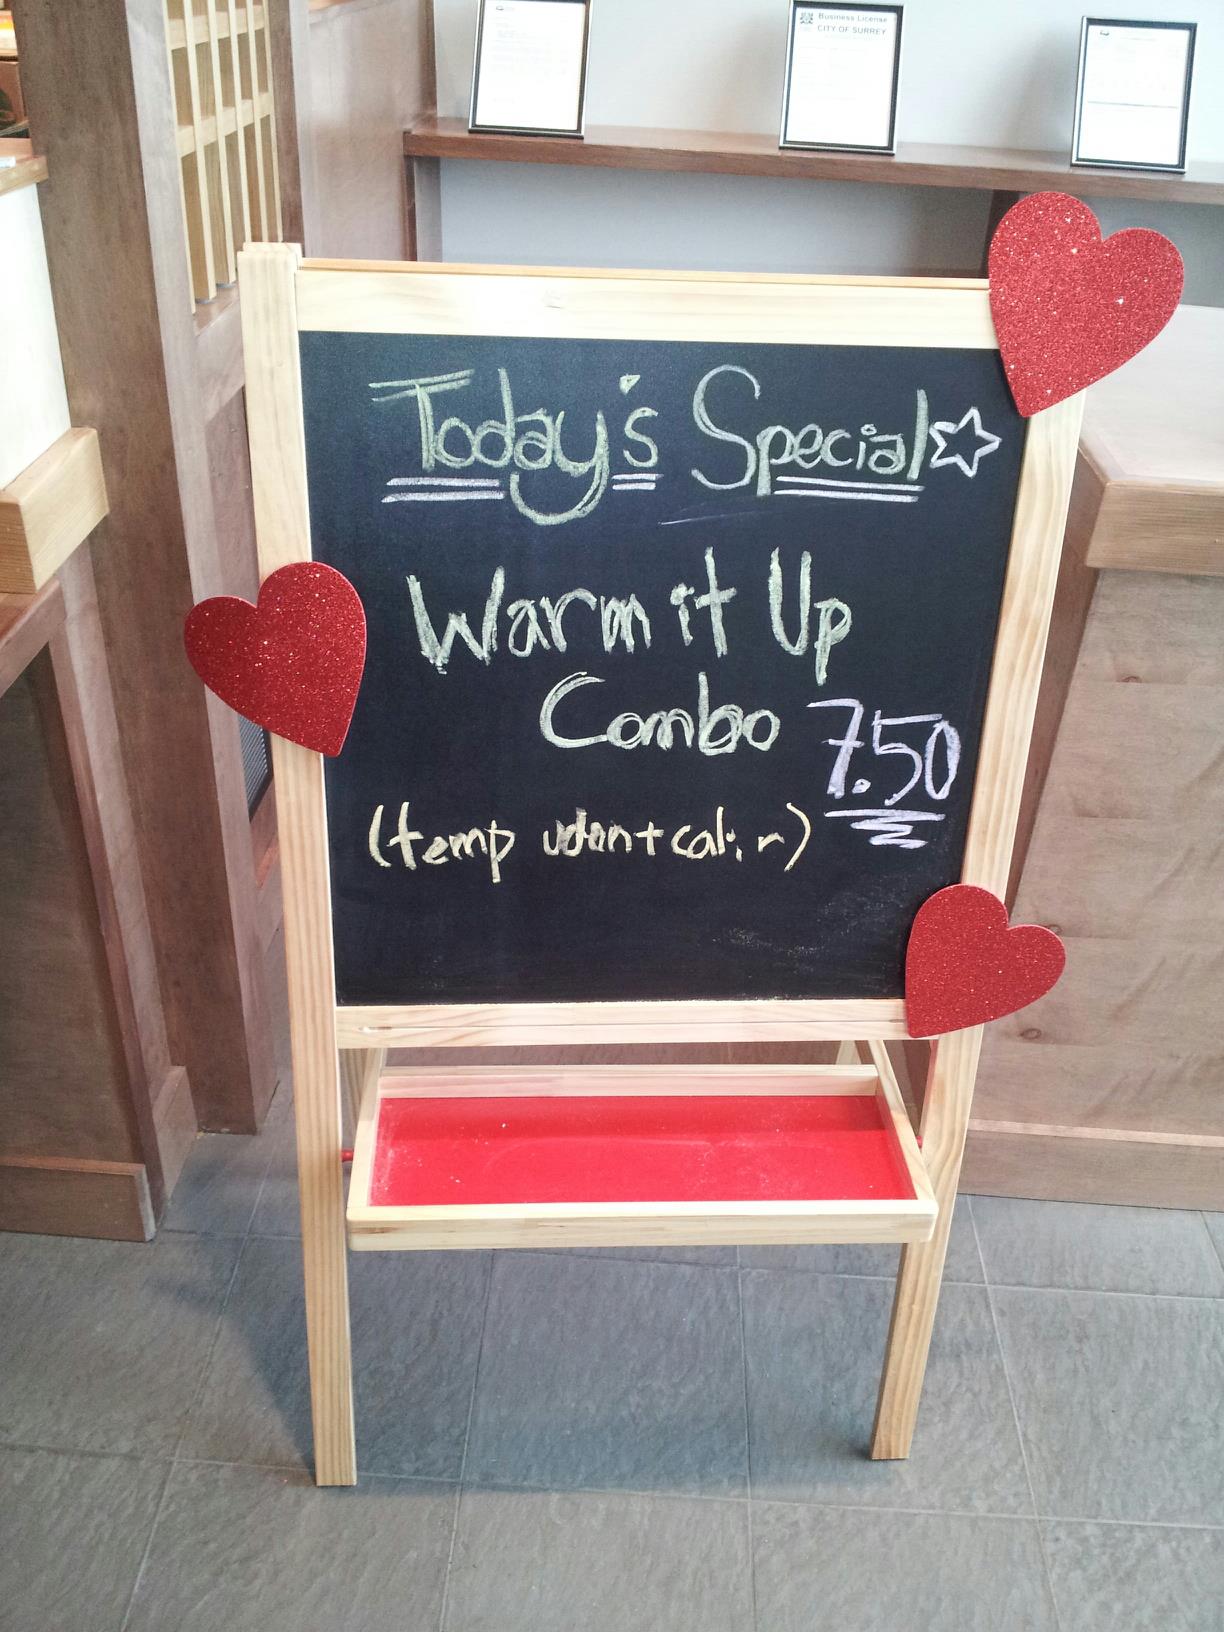 Business License
CITY OF SURREY
Today's Special
Warm it Up
Combo 7.50
(temp udon + cali r)